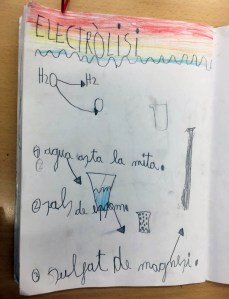 ELECTRÒLISI
H2O H2
O
① aigua asta la mita.
② sals de
③ sulfat de magnesi.